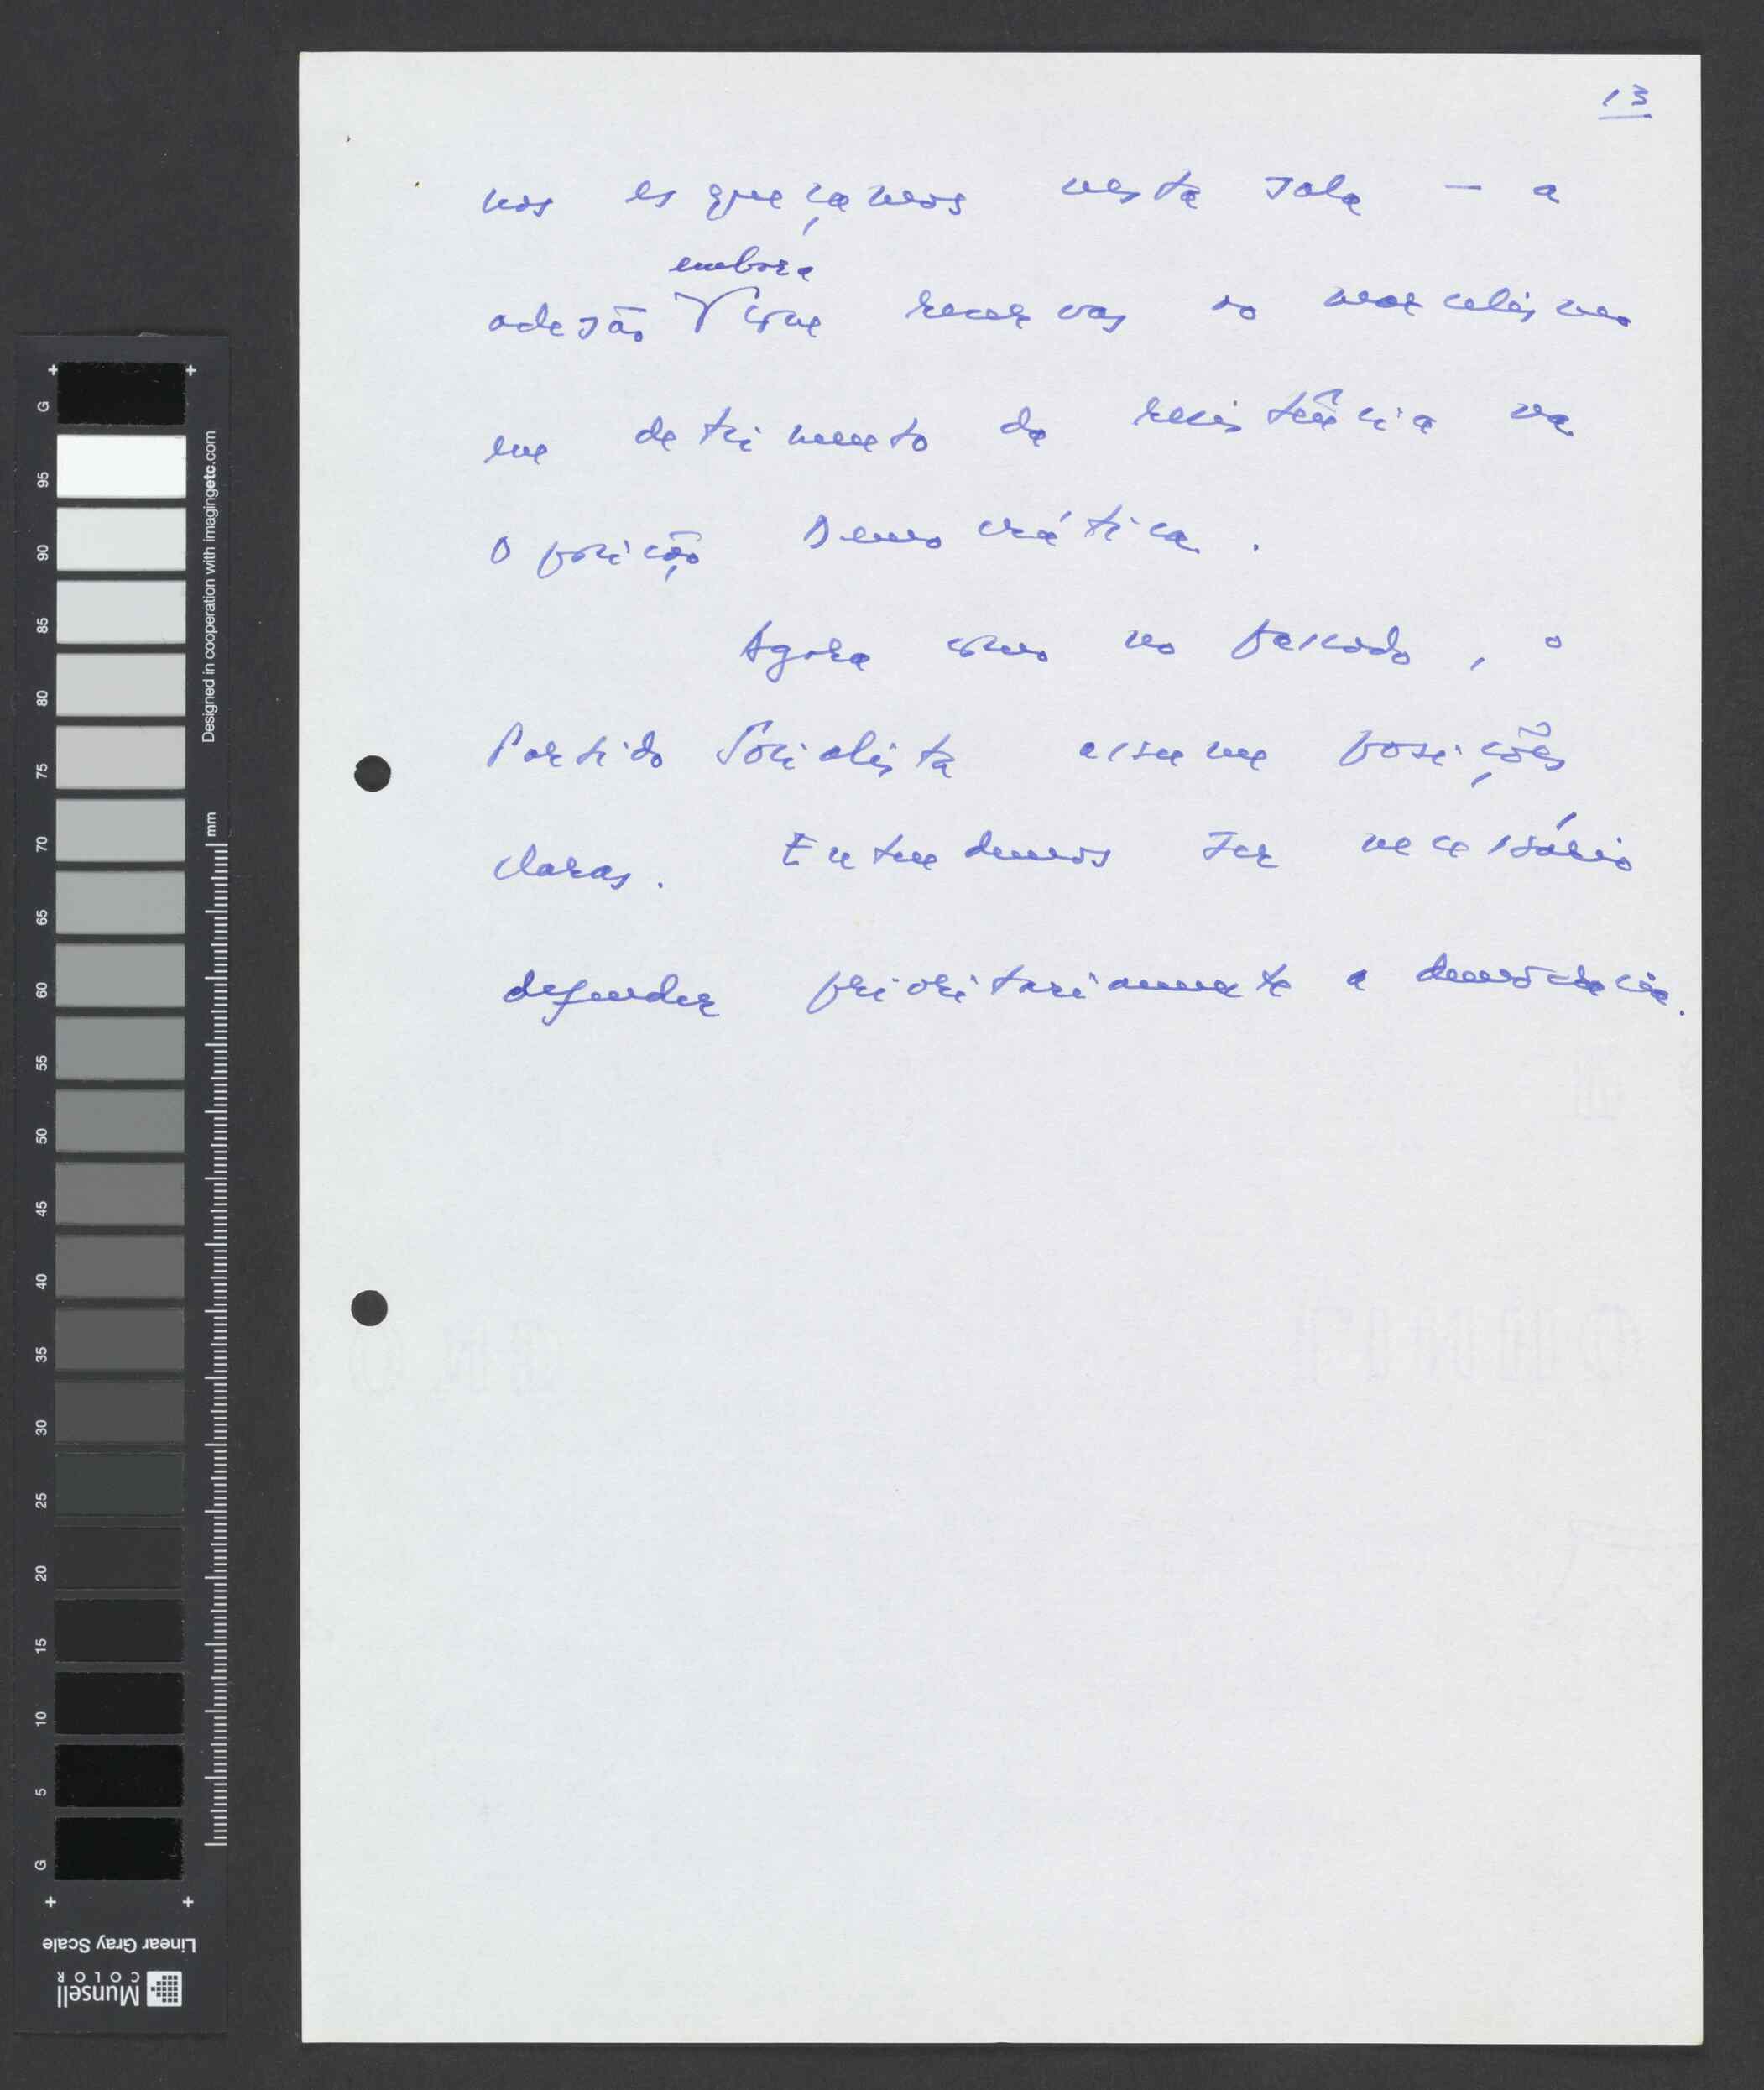 13
nos esqueçamos nesta sala — a
embora
adesão com reservas ao marcelismo
em detrimento da resistência na
Oposição Democrática.
Agora como no passado, o
Partido Socialista assume posições
claras. Entendemos ser necessário
defender prioritariamente a democracia.
G
95
90
85
80
75
70
65
60
55
50
45
40
35
30
25
20
15
10
5
G
Designed in cooperation with imagingetc.com
mm
Linear Gray Scale
Munsell
COLOR